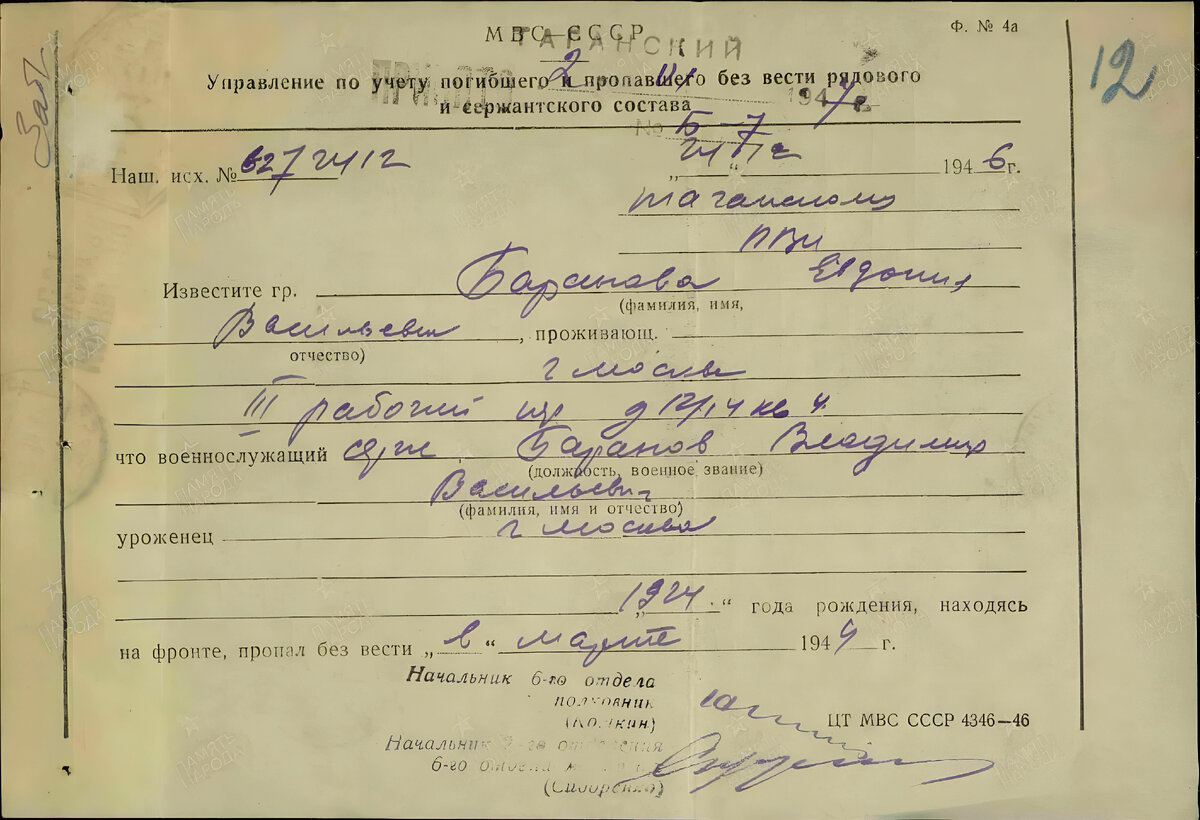 МВС—СССР
Ф. № 4а
12
ТАГАНСКИЙ
Управление по учету погибшего и пропавшего без вести рядового
и сержантского состава
2 III 1947 г
№ Б-7
Наш. исх. № 62724/12
„ “ 1946 г.
Таганскому
РВК
Известите гр. Баранова Евдокия
(фамилия, имя,
Васильевич, проживающ.
отчество)
г Москва
III рабочий пр д 12/14 кв 4
что военнослужащий Баранов Владимир
(должность, военное звание)
Васильевич
(фамилия, имя и отчество)
уроженец г Москва
„1924.“ года рождения, находясь
на фронте, пропал без вести „в“ марте 1944 г.
Начальник 6-го отдела
полковник
Начальник 2-го отделения
6-го отдела
ЦТ МВС СССР 4346—46